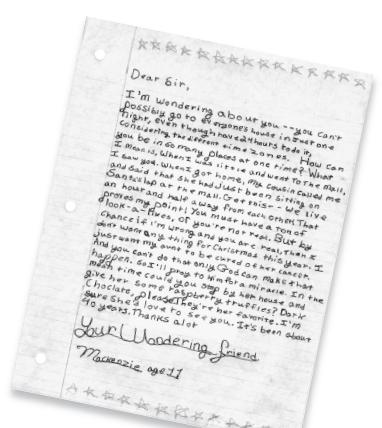 Dear Sir,
I'm wondering about you -- you can't
possibly go to everyone's house in just one
night, even though have 24 hours to do it,
considering the different time zones. How can
you be in so many places at one time? What
I mean is, When I was little and went to the mall,
I saw you. When I got home, my cousin called me
and said that she had Just been sitting on
Santa's lap at the mall. Get this -- We live
an hour and half away from each other. That
proves my point! You must have a ton of
look-a-likes, or you're not real. But by
chance if I'm wrong and you are real, then I
don't want anything for Christmas this year. I
Just want my aunt to be cured of her cancer.
And you can't do that only God can make that
happen. So I'll pray to him for a miracle. In the
mean time could you stop by her house and
give her some raspberry truffles? Dark
Choclate, please. They're her favorite. I'm
sure she'd love to see you. It's been about
40 years. Thanks alot
Your Wondering friend
Mackenzie age 11